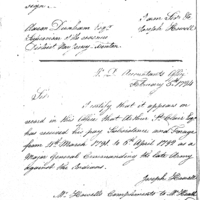 sign.
I am Sir &c
Joseph Howell
Aaron Dunham Esqr
Supervisor of the revenue
District New Jersey, Trenton
P. D. Accountants Office
February 5th 1794
Sir.
I certify that it appears on
record in this Office that Arthur St Clair Esqr
has received his pay Subsistence and Forage
from 4th March 1791 to 5th April 1792 as a
Major General Commanding the late Army
against the Indians.
Joseph Howell
Mr Howells Compliments to Mr